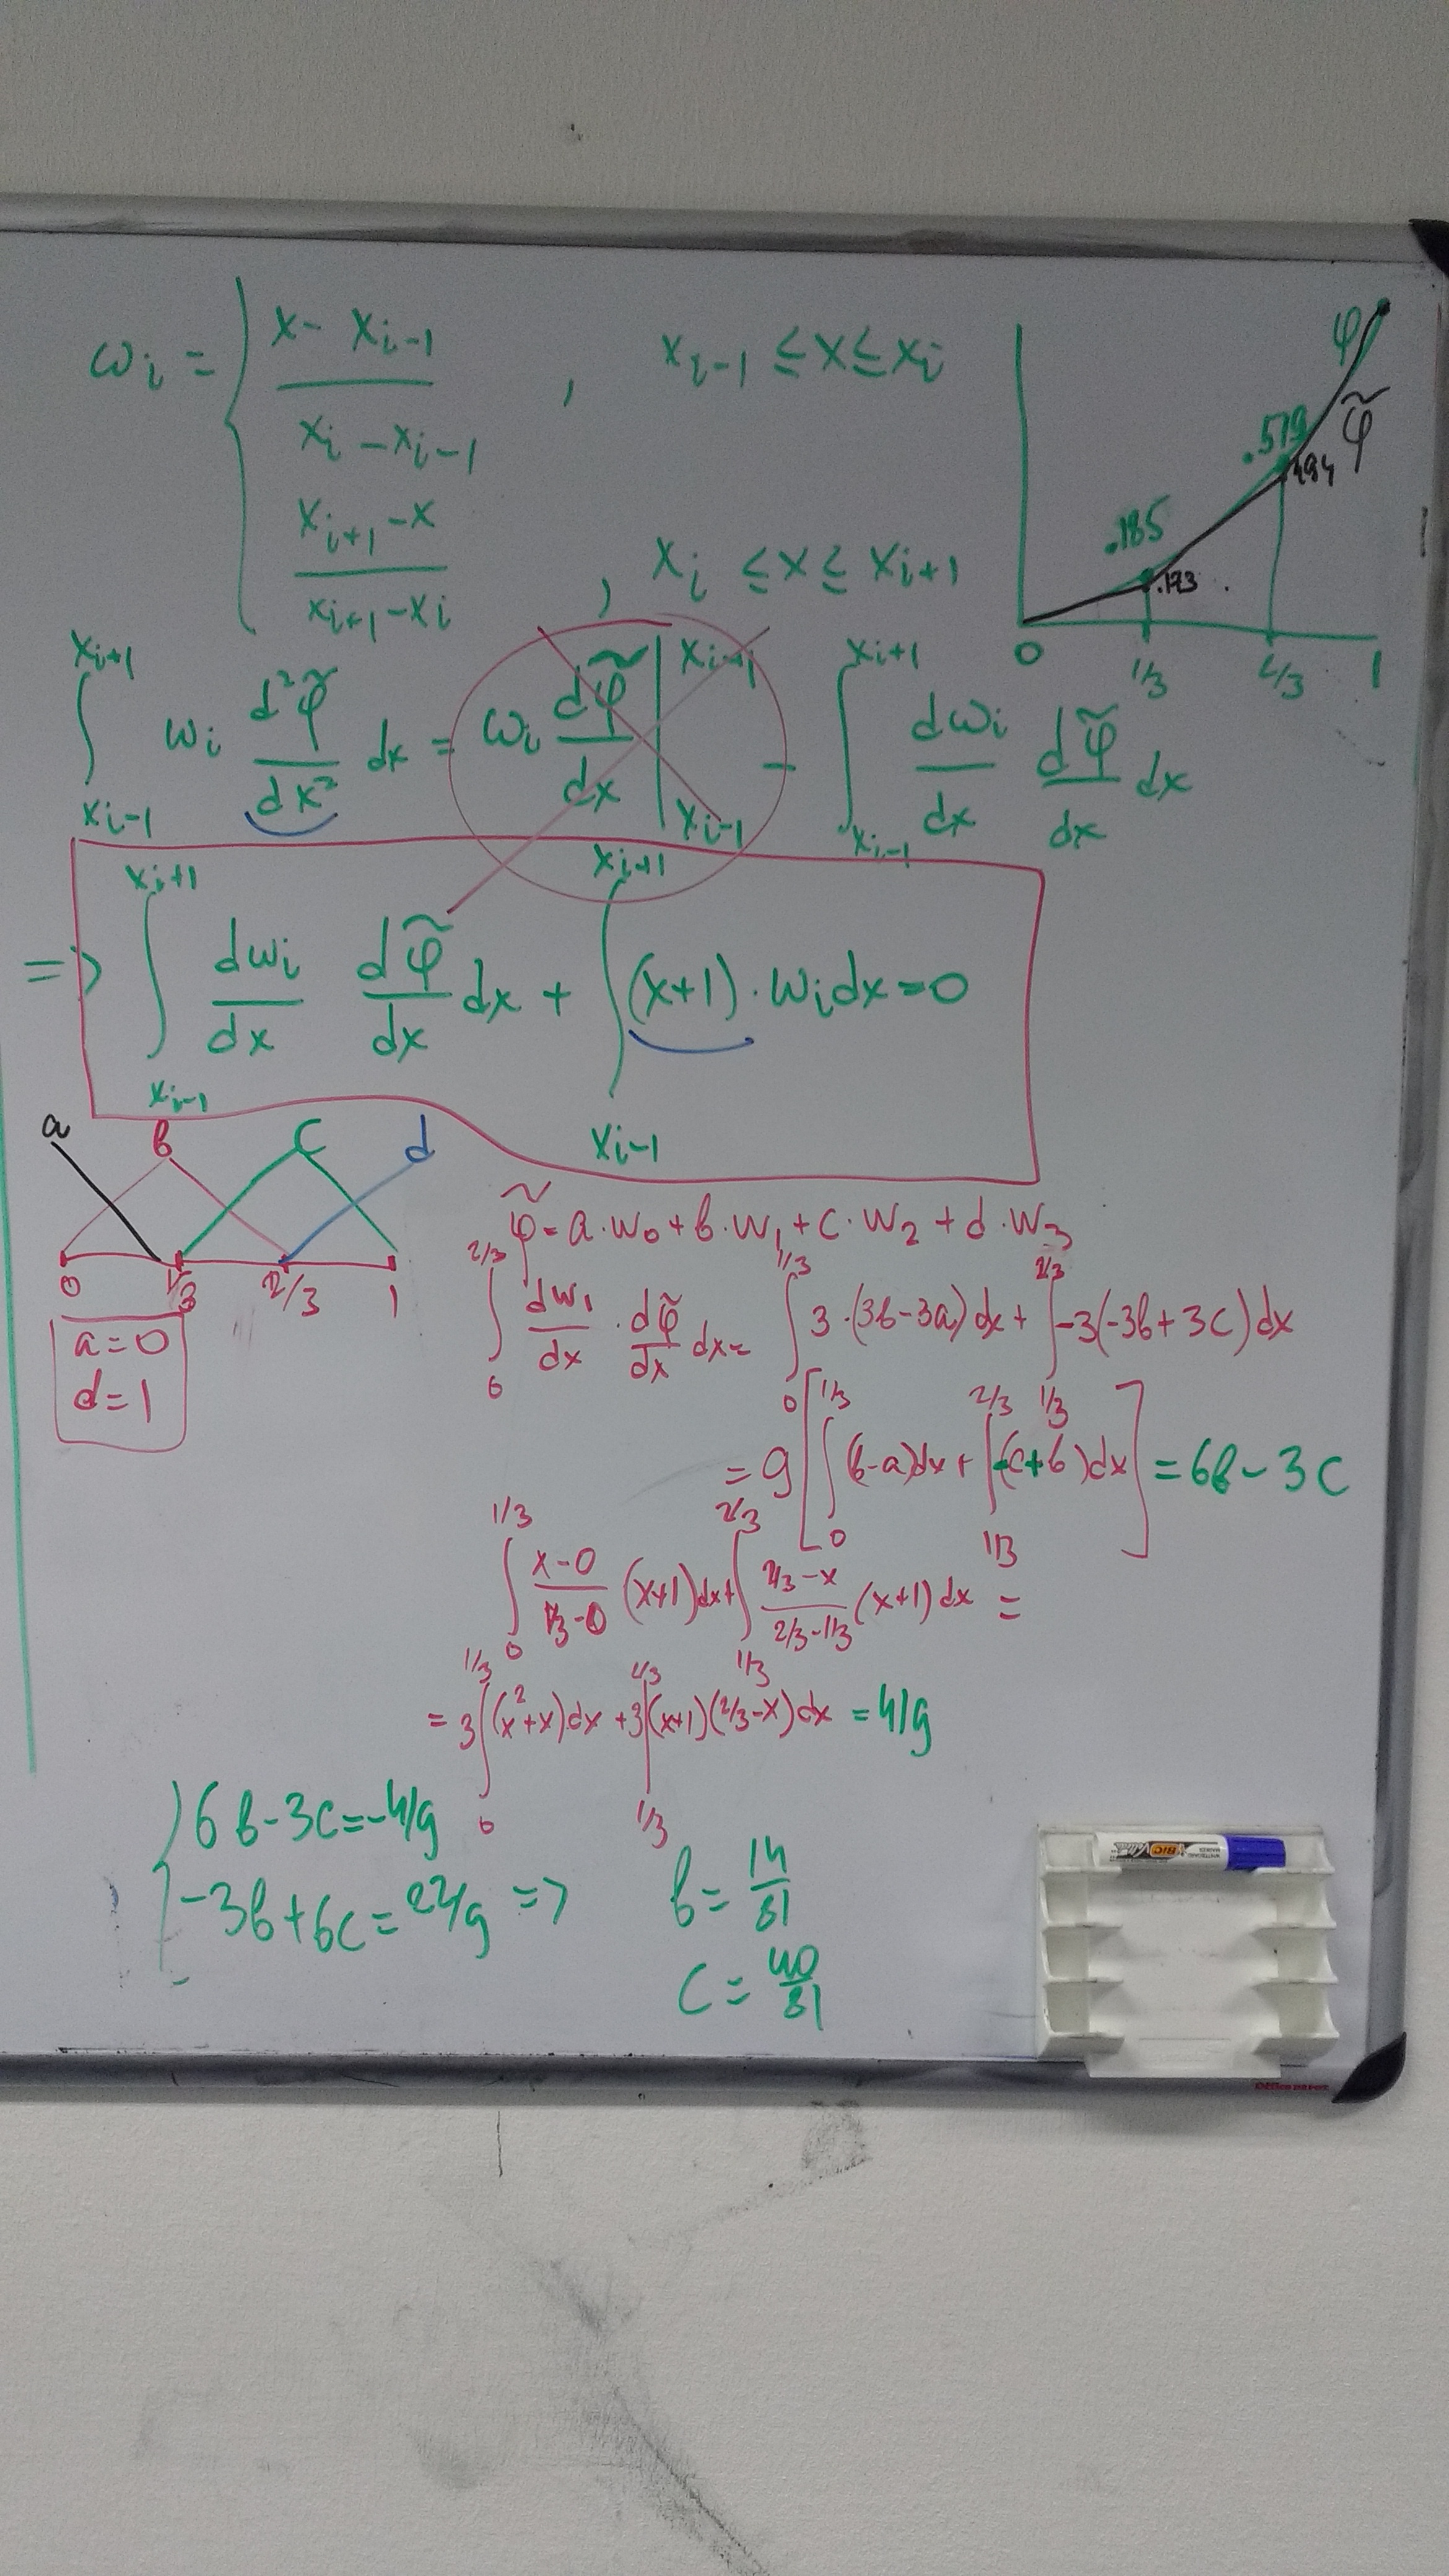 ωi = { (x - xi-1)/(xi - xi-1) , xi-1 ≤ x ≤ xi
(xi+1 - x)/(xi+1 - xi) , xi ≤ x ≤ xi+1
φ
φ̃
.519
.494
.185
.173
0 1/3 2/3 1
∫_{xi-1}^{xi+1} wi d²φ̃/dx² dx = wi dφ̃/dx |_{xi-1}^{xi+1} - ∫_{xi-1}^{xi+1} dwi/dx dφ̃/dx dx
=> ∫_{xi-1}^{xi+1} dwi/dx dφ̃/dx dx + ∫_{xi-1}^{xi+1} (x+1)·wi dx = 0
a b c d
0 1/3 2/3 1
a = 0
d = 1
φ̃ = a·w0 + b·w1 + c·w2 + d·w3
∫_0^{2/3} dw1/dx · dφ̃/dx dx = ∫_0^{1/3} 3·(3b-3a)dx + ∫_{1/3}^{2/3} -3(-3b+3c)dx
= 9[∫_0^{1/3} (b-a)dx + ∫_{1/3}^{2/3} (-c+b)dx] = 6b - 3c
∫_0^{1/3} (x-0)/(1/3-0) (x+1)dx + ∫_{1/3}^{2/3} (2/3-x)/(2/3-1/3) (x+1)dx =
= 3∫_0^{1/3} (x²+x)dx + 3∫_{1/3}^{2/3} (x+1)(2/3-x)dx = 4/9
{ 6b - 3c = -4/9
-3b + 6c = 22/9 => b = 14/81
c = 40/81
BIC
Office DEPOT